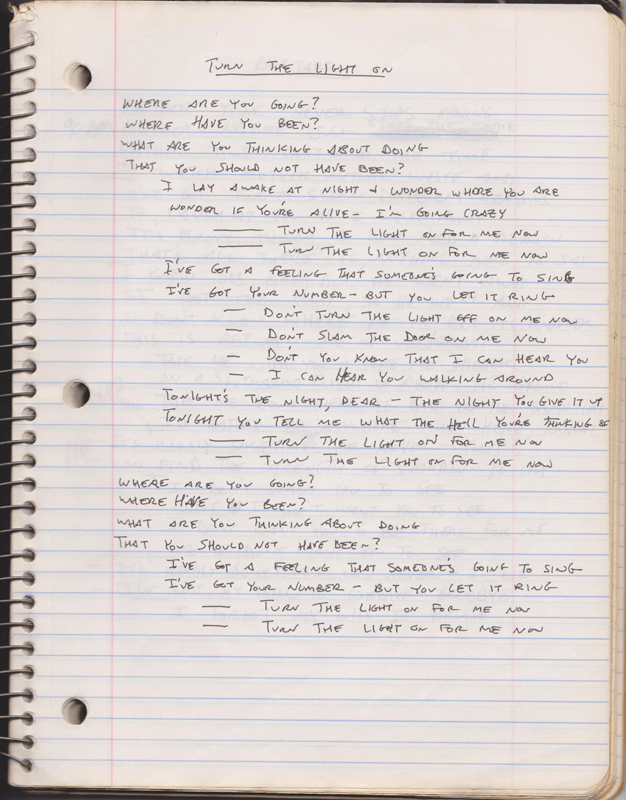 TURN THE LIGHT ON
WHERE ARE YOU GOING?
WHERE HAVE YOU BEEN?
WHAT ARE YOU THINKING ABOUT DOING
THAT YOU SHOULD NOT HAVE BEEN?
I LAY AWAKE AT NIGHT & WONDER WHERE YOU ARE
WONDER IF YOU'RE ALIVE - I'M GOING CRAZY
— TURN THE LIGHT ON FOR ME NOW
— TURN THE LIGHT ON FOR ME NOW
I'VE GOT A FEELING THAT SOMEONE'S GOING TO SING
I'VE GOT YOUR NUMBER - BUT YOU LET IT RING
— DON'T TURN THE LIGHT OFF ON ME NOW
— DON'T SLAM THE DOOR ON ME NOW
— DON'T YOU KNOW THAT I CAN HEAR YOU
— I CAN HEAR YOU WALKING AROUND
TONIGHT'S THE NIGHT, DEAR - THE NIGHT YOU GIVE IT UP
TONIGHT YOU TELL ME WHAT THE HELL YOU'RE THINKING OF
— TURN THE LIGHT ON FOR ME NOW
— TURN THE LIGHT ON FOR ME NOW
WHERE ARE YOU GOING?
WHERE HAVE YOU BEEN?
WHAT ARE YOU THINKING ABOUT DOING
THAT YOU SHOULD NOT HAVE BEEN?
I'VE GOT A FEELING THAT SOMEONE'S GOING TO SING
I'VE GOT YOUR NUMBER - BUT YOU LET IT RING
— TURN THE LIGHT ON FOR ME NOW
— TURN THE LIGHT ON FOR ME NOW